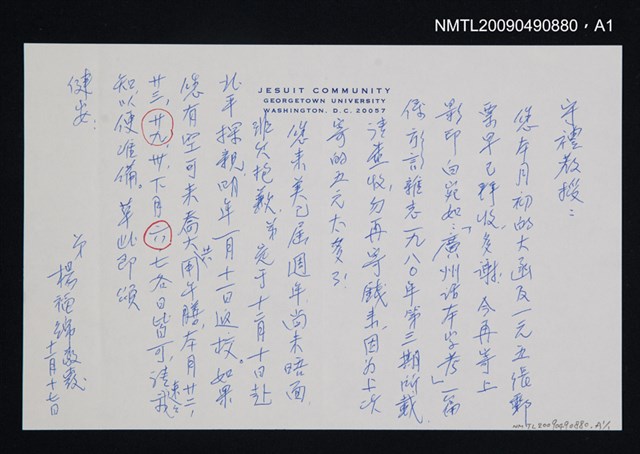 NMTL20090490880，A1
JESUIT COMMUNITY
GEORGETOWN UNIVERSITY
WASHINGTON, D.C. 20057
守禮教授：
您本月初的大函及一元五張郵
票早已拜收多謝。今再寄上
影印白宛如：「廣州話本字考」一篇
係方言雜志一九八０年第三期所載
請查收，勿再寄錢來，因为上次
寄的五元太多了！
您來美已屆週年尚未晤面
很抱歉。弟定于十二月十日赴
北平探親，明年一月十一日返校。如果
您有空可來喬大共用午膳，本月廿二，
廿三，廿九，卅，下月六，七各日皆可，請速告我
知以便准備。草此即頌
健安：
弟
楊福綿敬啟
十一月十七日
NMTL20090490880.A1/1